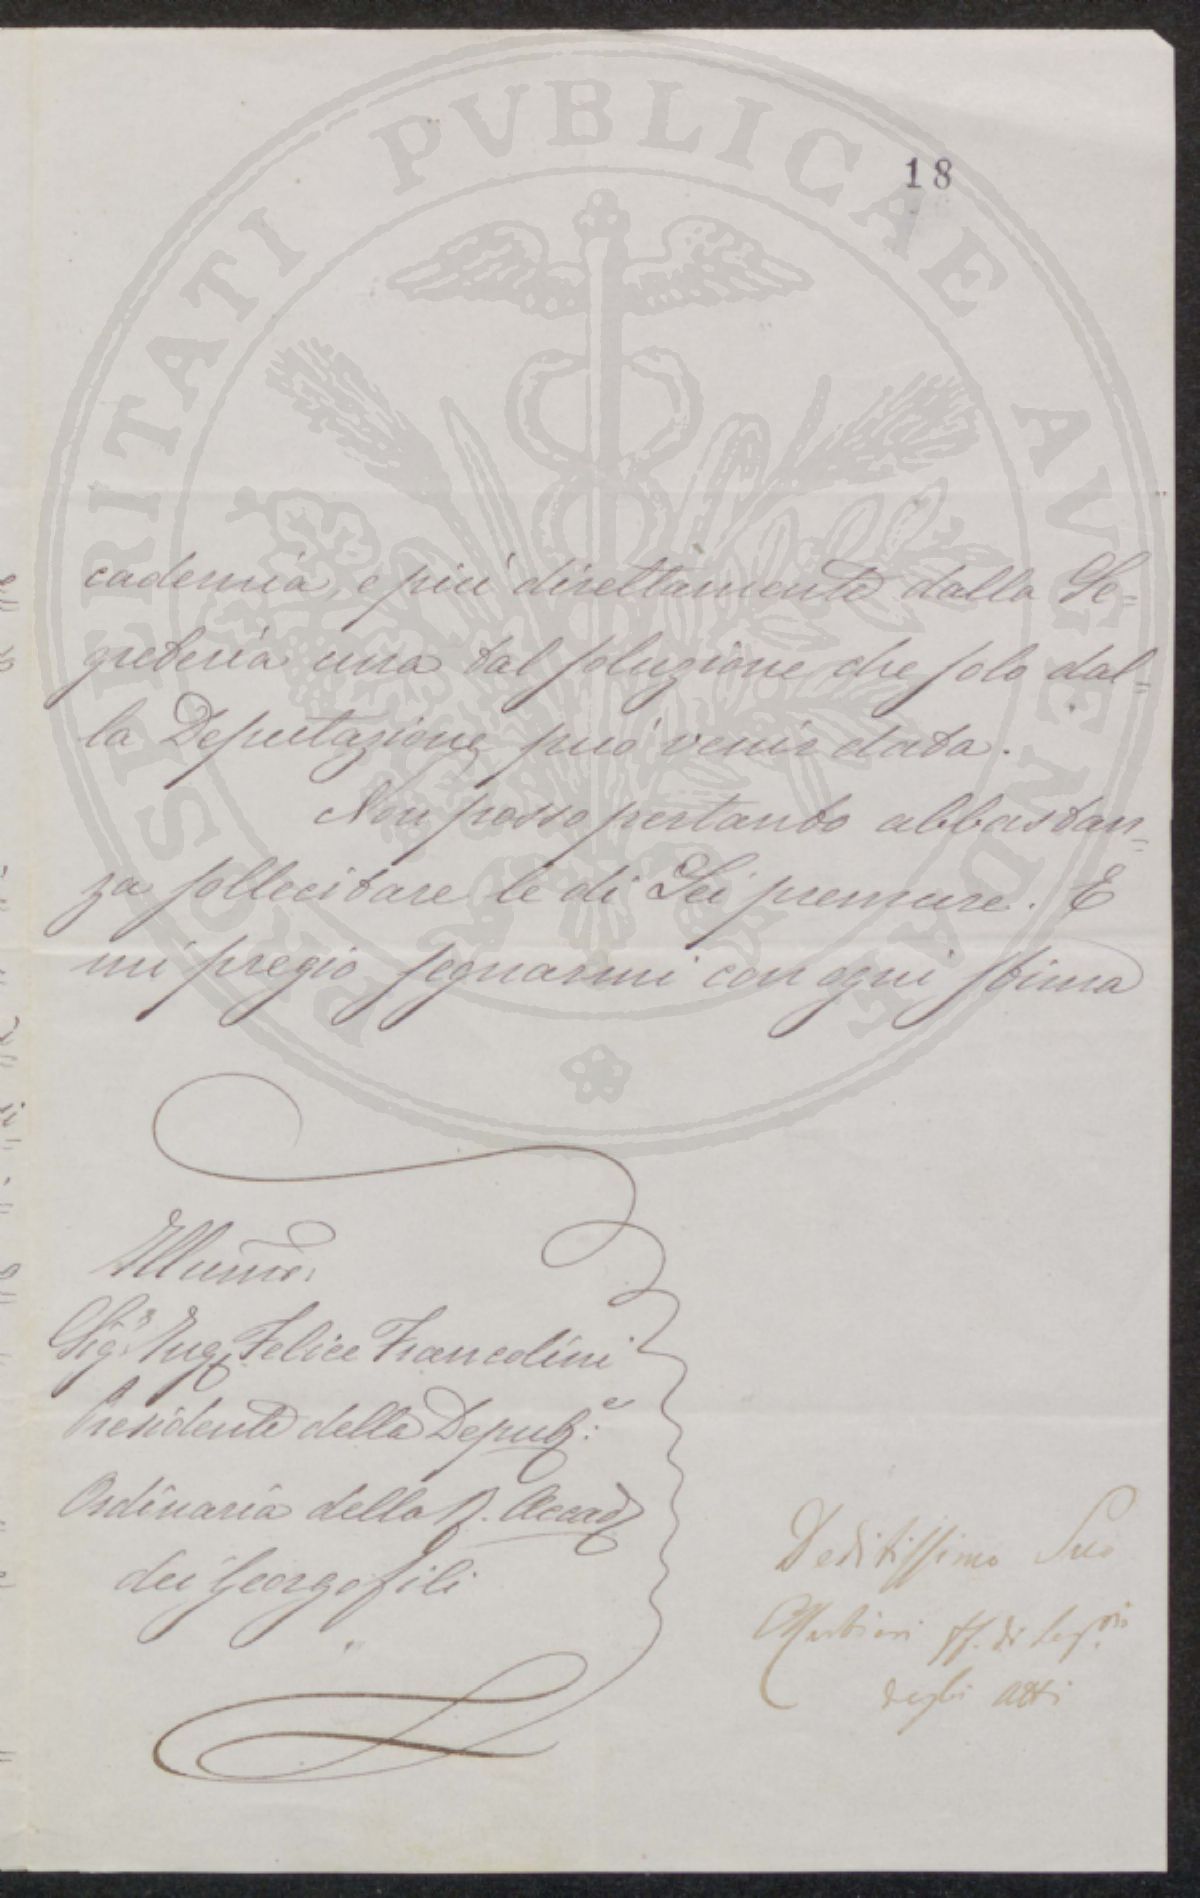 18
PROSPERITATI PVBLICAE AVGENDAE
cademia, e più direttamente dalla Se=
greteria una tal soluzione che solo dal=
la Deputazione può venir data.
Non posso pertanto abbastan=
za sollecitare le di Lei premure. E
mi pregio segnarmi con ogni stima
Illumo:
Sigr Ing Felice Francolini
Presidente della Deputze:
Ordinaria della R. Accad
dei Georgofili
Deditissimo Suo
ff. di Segrio
degli Atti